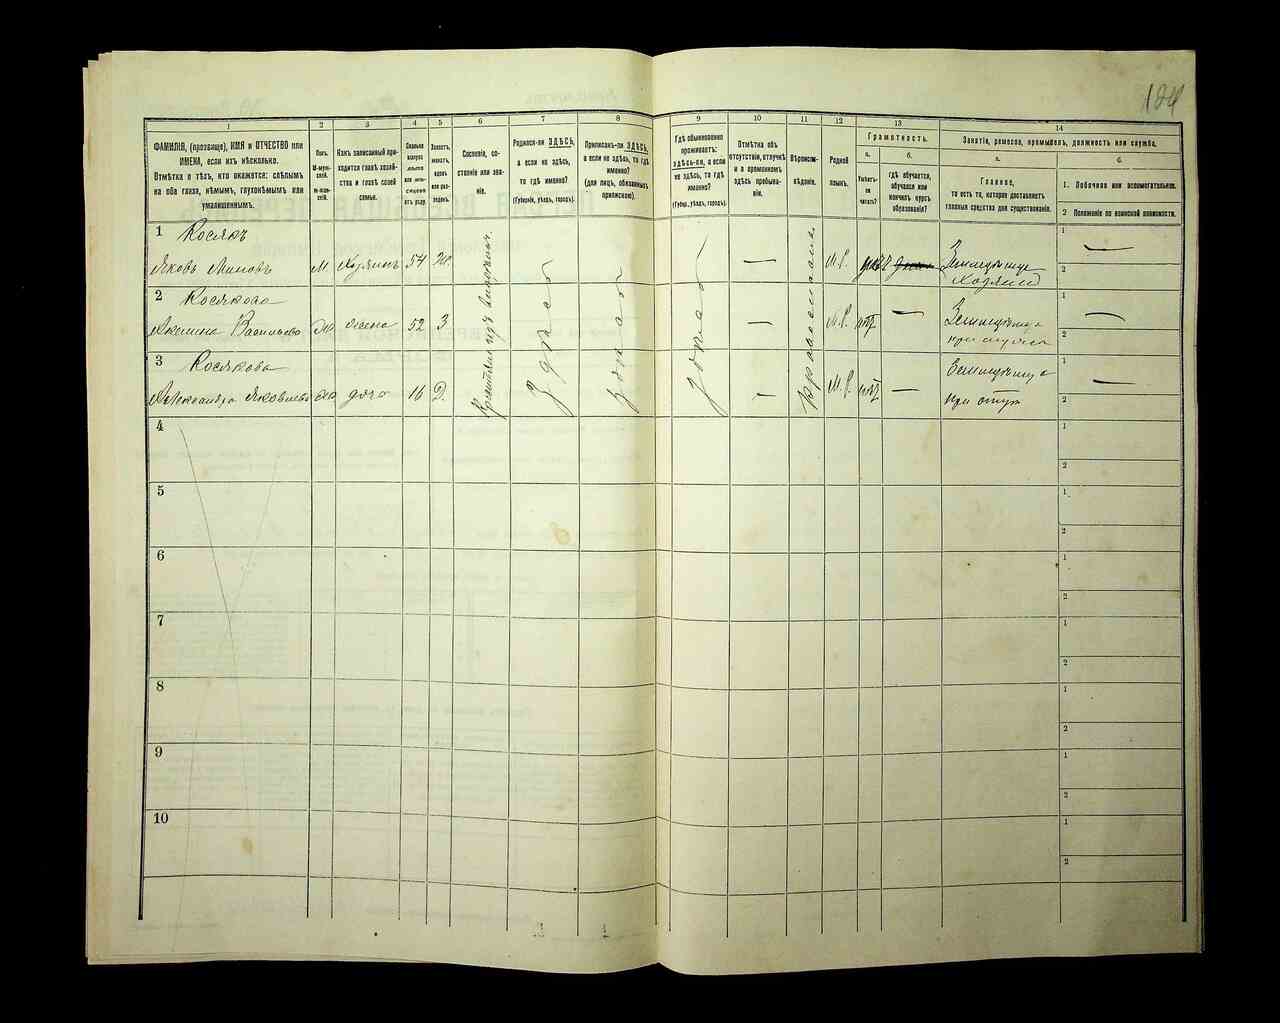 104
1
2
3
4
5
6
7
8
9
10
11
12
13
14
ФАМИЛІЯ, (прозвище), ИМЯ и ОТЧЕСТВО или
ИМЕНА, если ихъ нѣсколько.
Отмѣтка о тѣхъ, кто окажется: слѣпымъ
на оба глаза, нѣмымъ, глухонѣмымъ или
умалишеннымъ.
Полъ.
М-муж-
ской.
ж-жен-
скій.
Какъ записанный при-
ходится главѣ хозяй-
ства и главѣ своей
семьи.
Сколько
минуло
лѣтъ
или мѣ-
сяцевъ
отъ роду.
Холостъ,
женатъ,
вдовъ
или раз-
веденъ.
Сословіе, со-
стояніе или зва-
ніе.
Родился-ли ЗДѢСЬ,
а если не здѣсь,
то гдѣ именно?
(Губернія, уѣздъ, городъ).
Приписанъ-ли ЗДѢСЬ,
а если не здѣсь, то гдѣ
именно?
(для лицъ, обязанныхъ
припискою).
Гдѣ обыкновенно
проживаетъ:
здѣсь-ли, а если
не здѣсь, то гдѣ
именно?
(Губер., уѣздъ, городъ).
Отмѣтка объ
отсутствіи, отлучкѣ
и о временномъ
здѣсь пребыва-
ніи.
Вѣроиспо-
вѣданіе.
Родной
языкъ.
Грамотность.
а.
Умѣетъ-
ли
читать?
б.
гдѣ обучается,
обучался или
кончилъ курсъ
образованія?
Занятіе, ремесло, промыселъ, должность или служба.
а.
Главное,
то есть то, которое доставляетъ
главныя средства для существованія.
б.
1. Побочное или вспомогательное.
2 Положеніе по воинской повинности.
1 Косякъ
Яковъ м. Хозяинъ 54 Ж. М.Р. Хозяинъ
2 Косякова
Васильева жена 52 З. М.Р.
3 Косякова
Александра Яковлева дочь 16 Д. М.Р.
Здѣсь
4
5
6
7
8
9
10
1
2
1
2
1
2
1
2
1
2
1
2
1
2
1
2
1
2
1
2